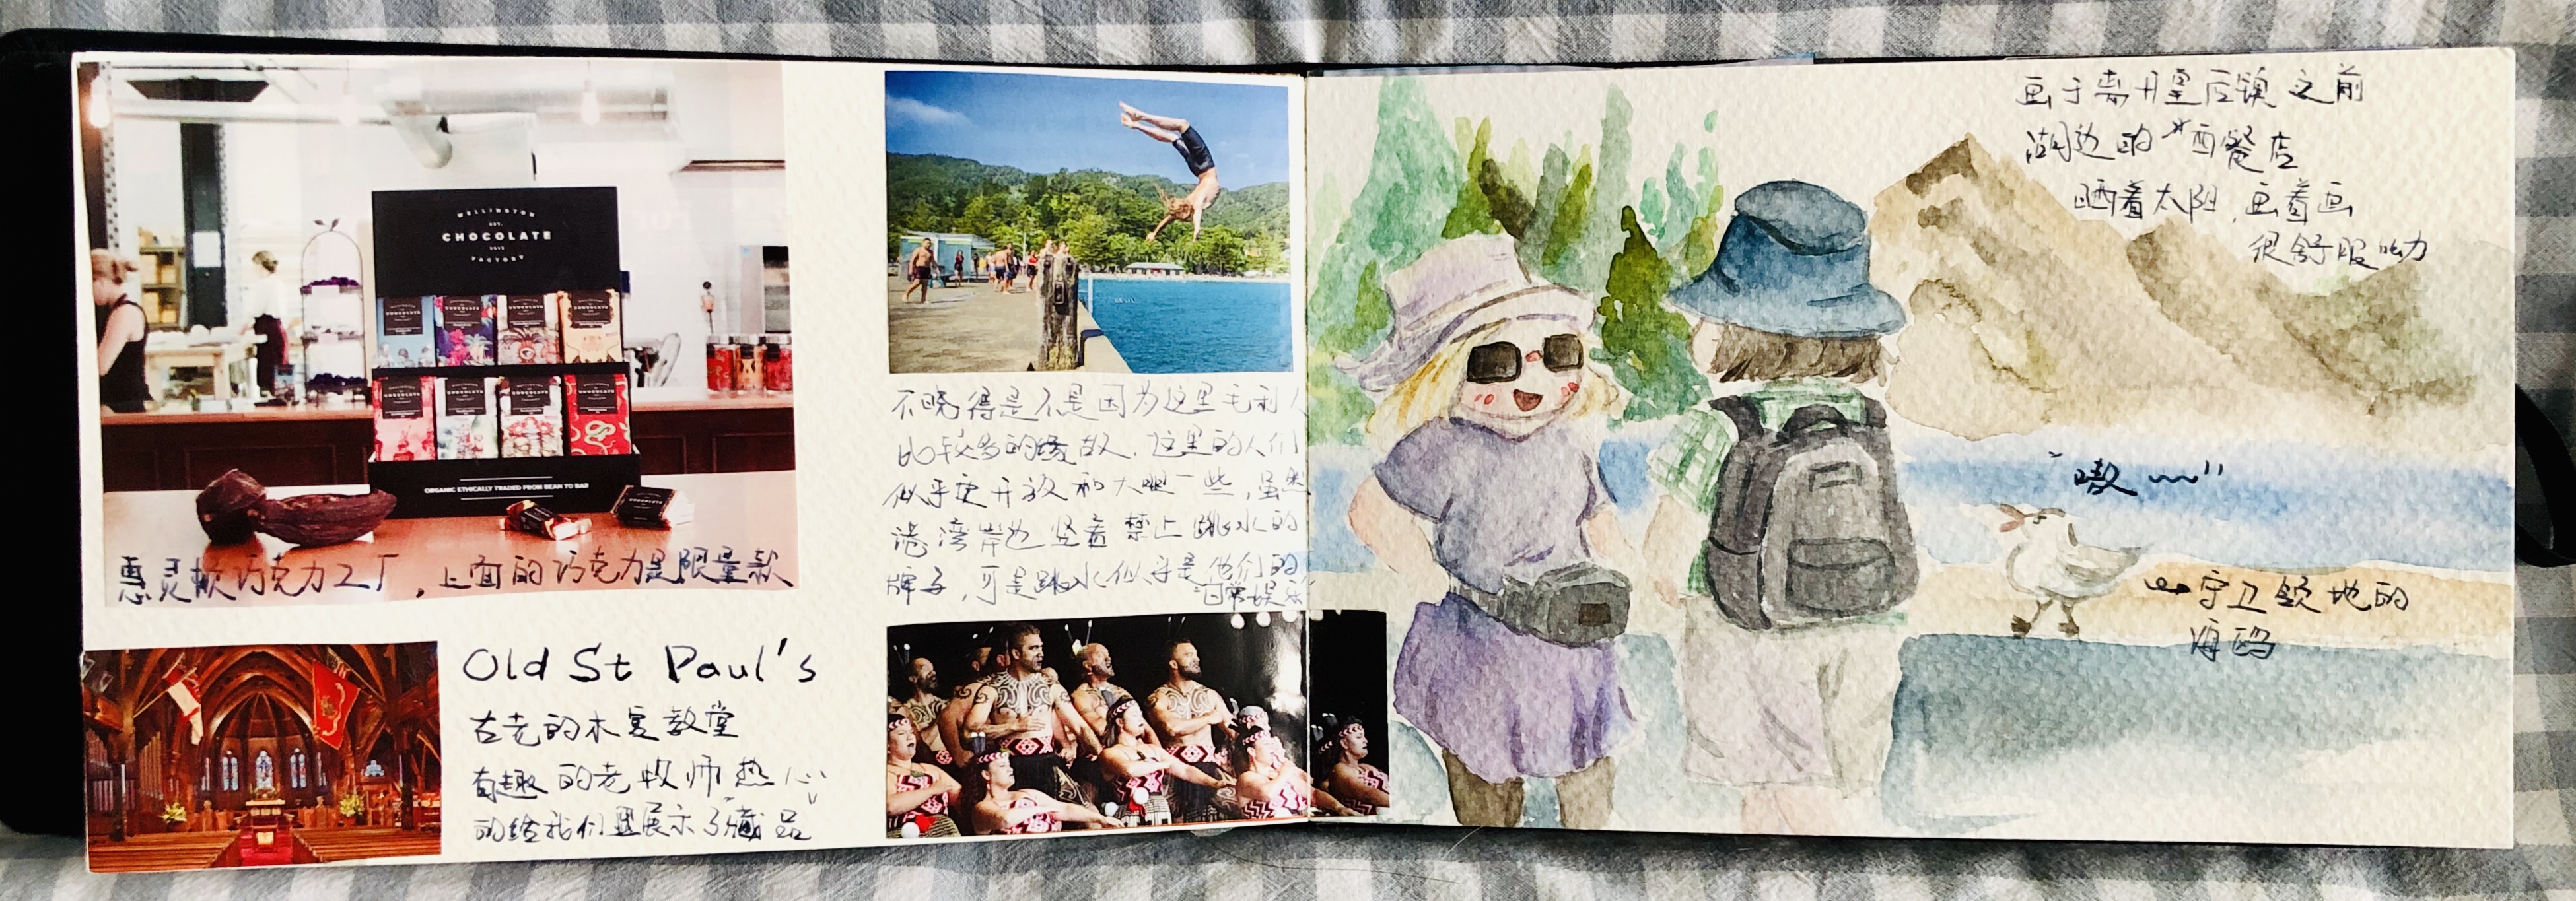 WELLINGTON
EST. 2013
CHOCOLATE
FACTORY
ORGANIC ETHICALLY TRADED FROM BEAN TO BAR
惠灵顿巧克力工厂，上面的巧克力是限量款
Old St Paul's
古老的木宴教堂
有趣的老牧师热心
的给我们展示了藏品
不晓得是不是因为这里毛利人
比较多的缘故，这里的人们
似乎更开放和大胆一些，虽然
港湾岸边竖着禁止跳水的
牌子，可是跳水似乎是他们的
日常娱乐
画于离开皇后镇之前
湖边的西餐店
晒着太阳，画着画
很舒服呦
"嗷~~"
守卫领地的
海鸥